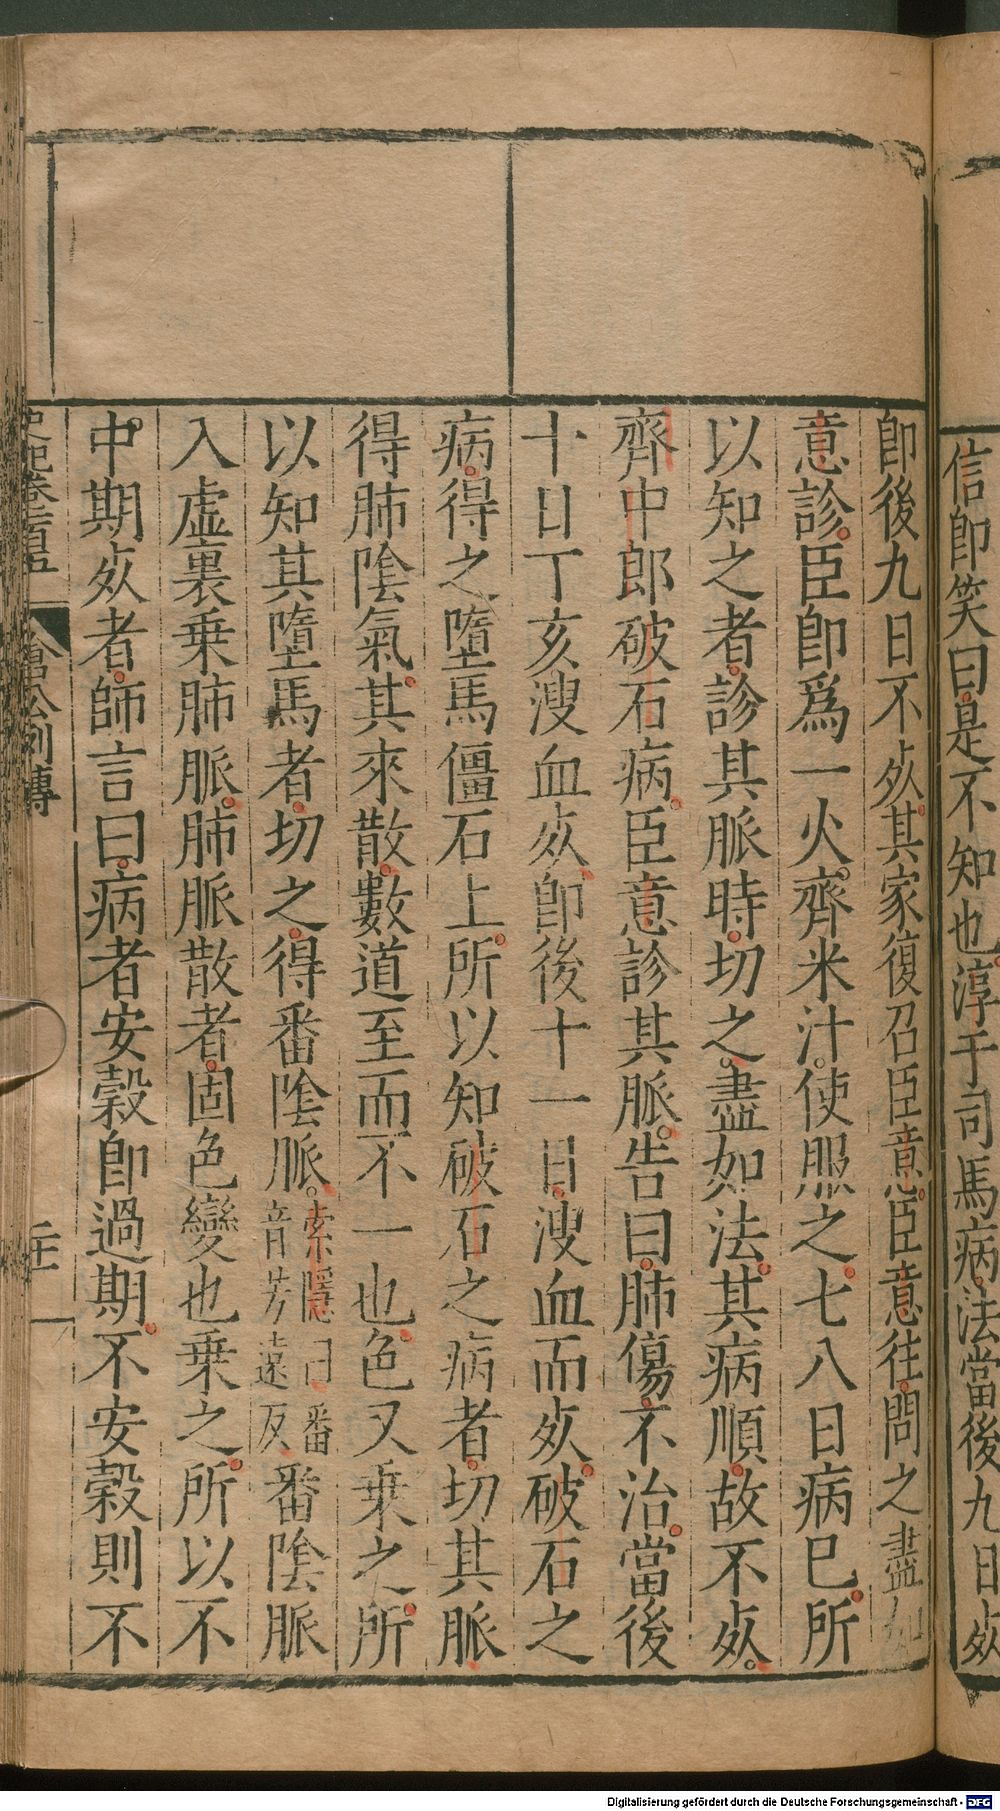 信卽笑曰是不知也淳于司馬病法當後九日𣦸
卽後九日不𣦸其家復召臣意臣意往問之盡如
意診臣卽爲一火齊米汁使服之七八日病已所
以知之者診其脈時切之盡如法其病順故不𣦸
齊中郎破石病臣意診其脈告曰肺傷不治當後
十日丁亥溲血𣦸卽後十一日溲血而𣦸破石之
病得之墮馬僵石上所以知破石之病者切其脈
得肺陰氣其來散數道至而不一也色又乗之所
以知其墮馬者切之得番陰脈索隱曰番音芳遠反番陰脈
入虛裏乗肺脈肺脈散者固色變也乗之所以不
中期𣦸者師言曰病者安榖卽過期不安榖則不
倉公列傳
Digitalisierung gefördert durch die Deutsche Forschungsgemeinschaft - DFG